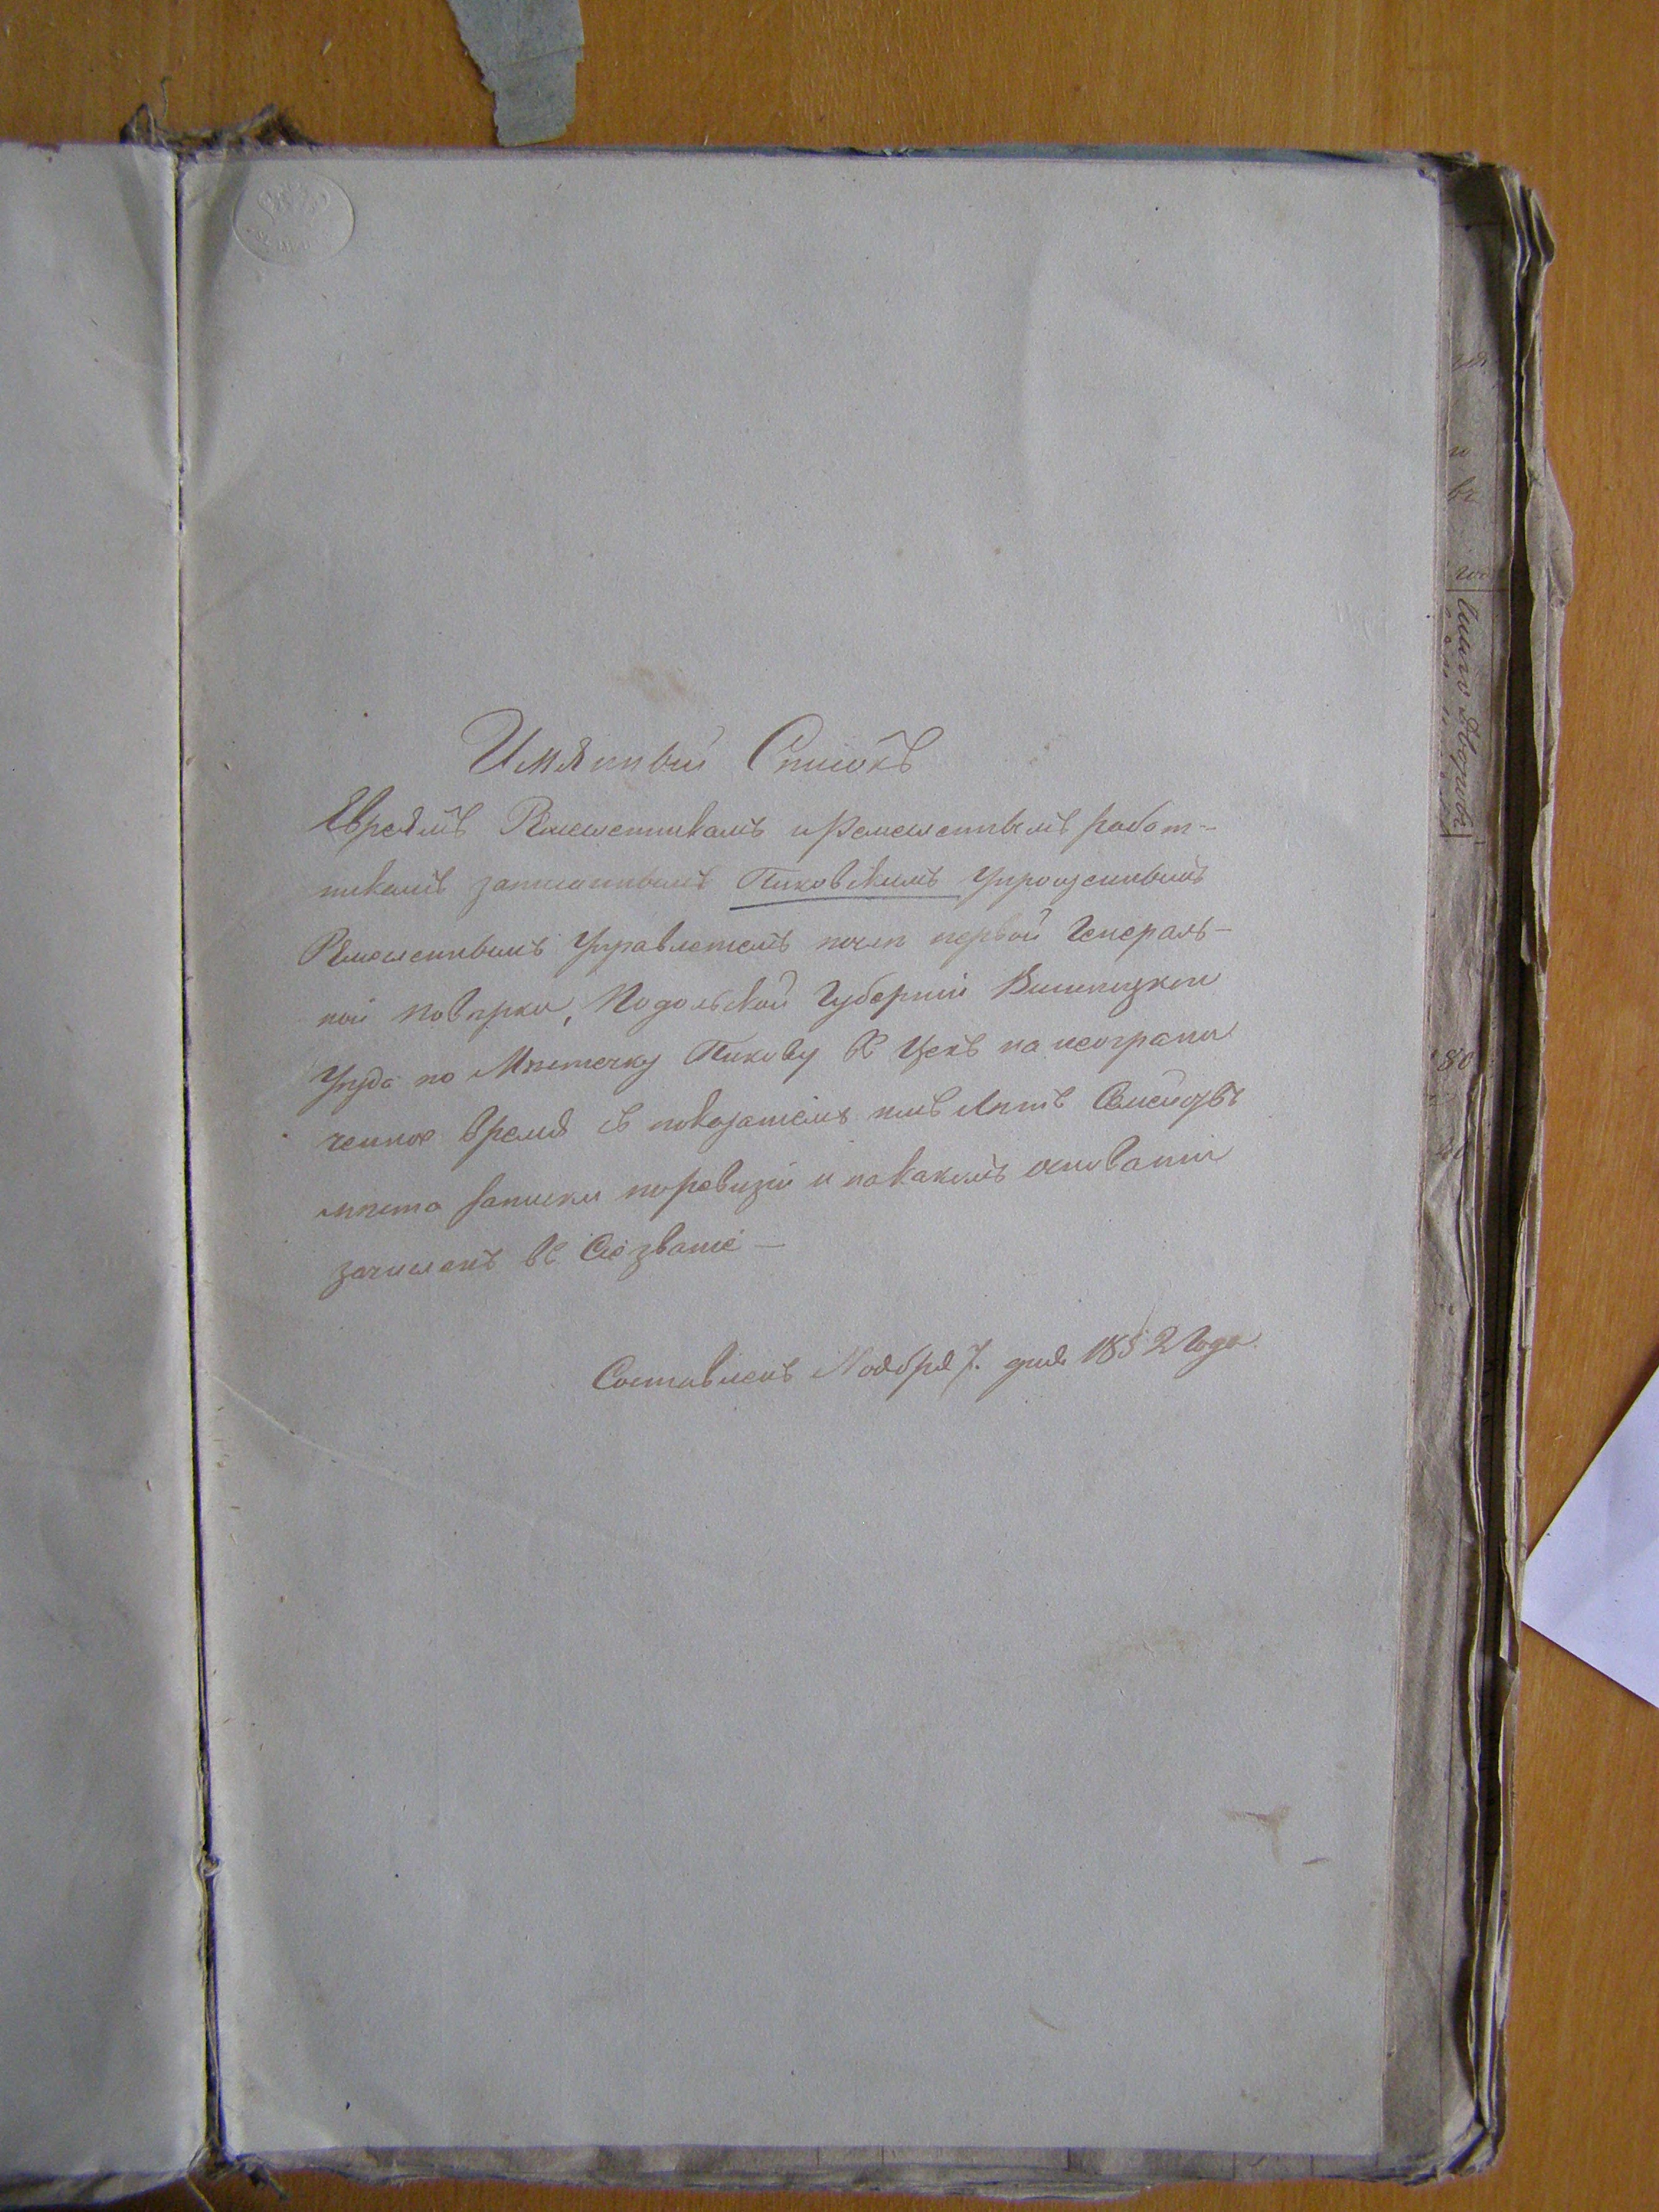 Имянный Списокъ
Евреямъ Ремесленникамъ и Ремесленнымъ работ-
никамъ записаннымъ Пиковскимъ Упрощеннымъ
Ремесленнымъ Управленіемъ после первой Генераль-
ной поверки, Подольской Губерніи Винницкого
Уезда по Местечку Пикову въ Цехъ на неограни
ченное время съ показаніемъ имъ летъ Семействъ
места записки по ревизіи и на какомъ основаніи
зачисленъ въ Сіе званіе —
Составленъ Ноября 7. дня 1852 Года.